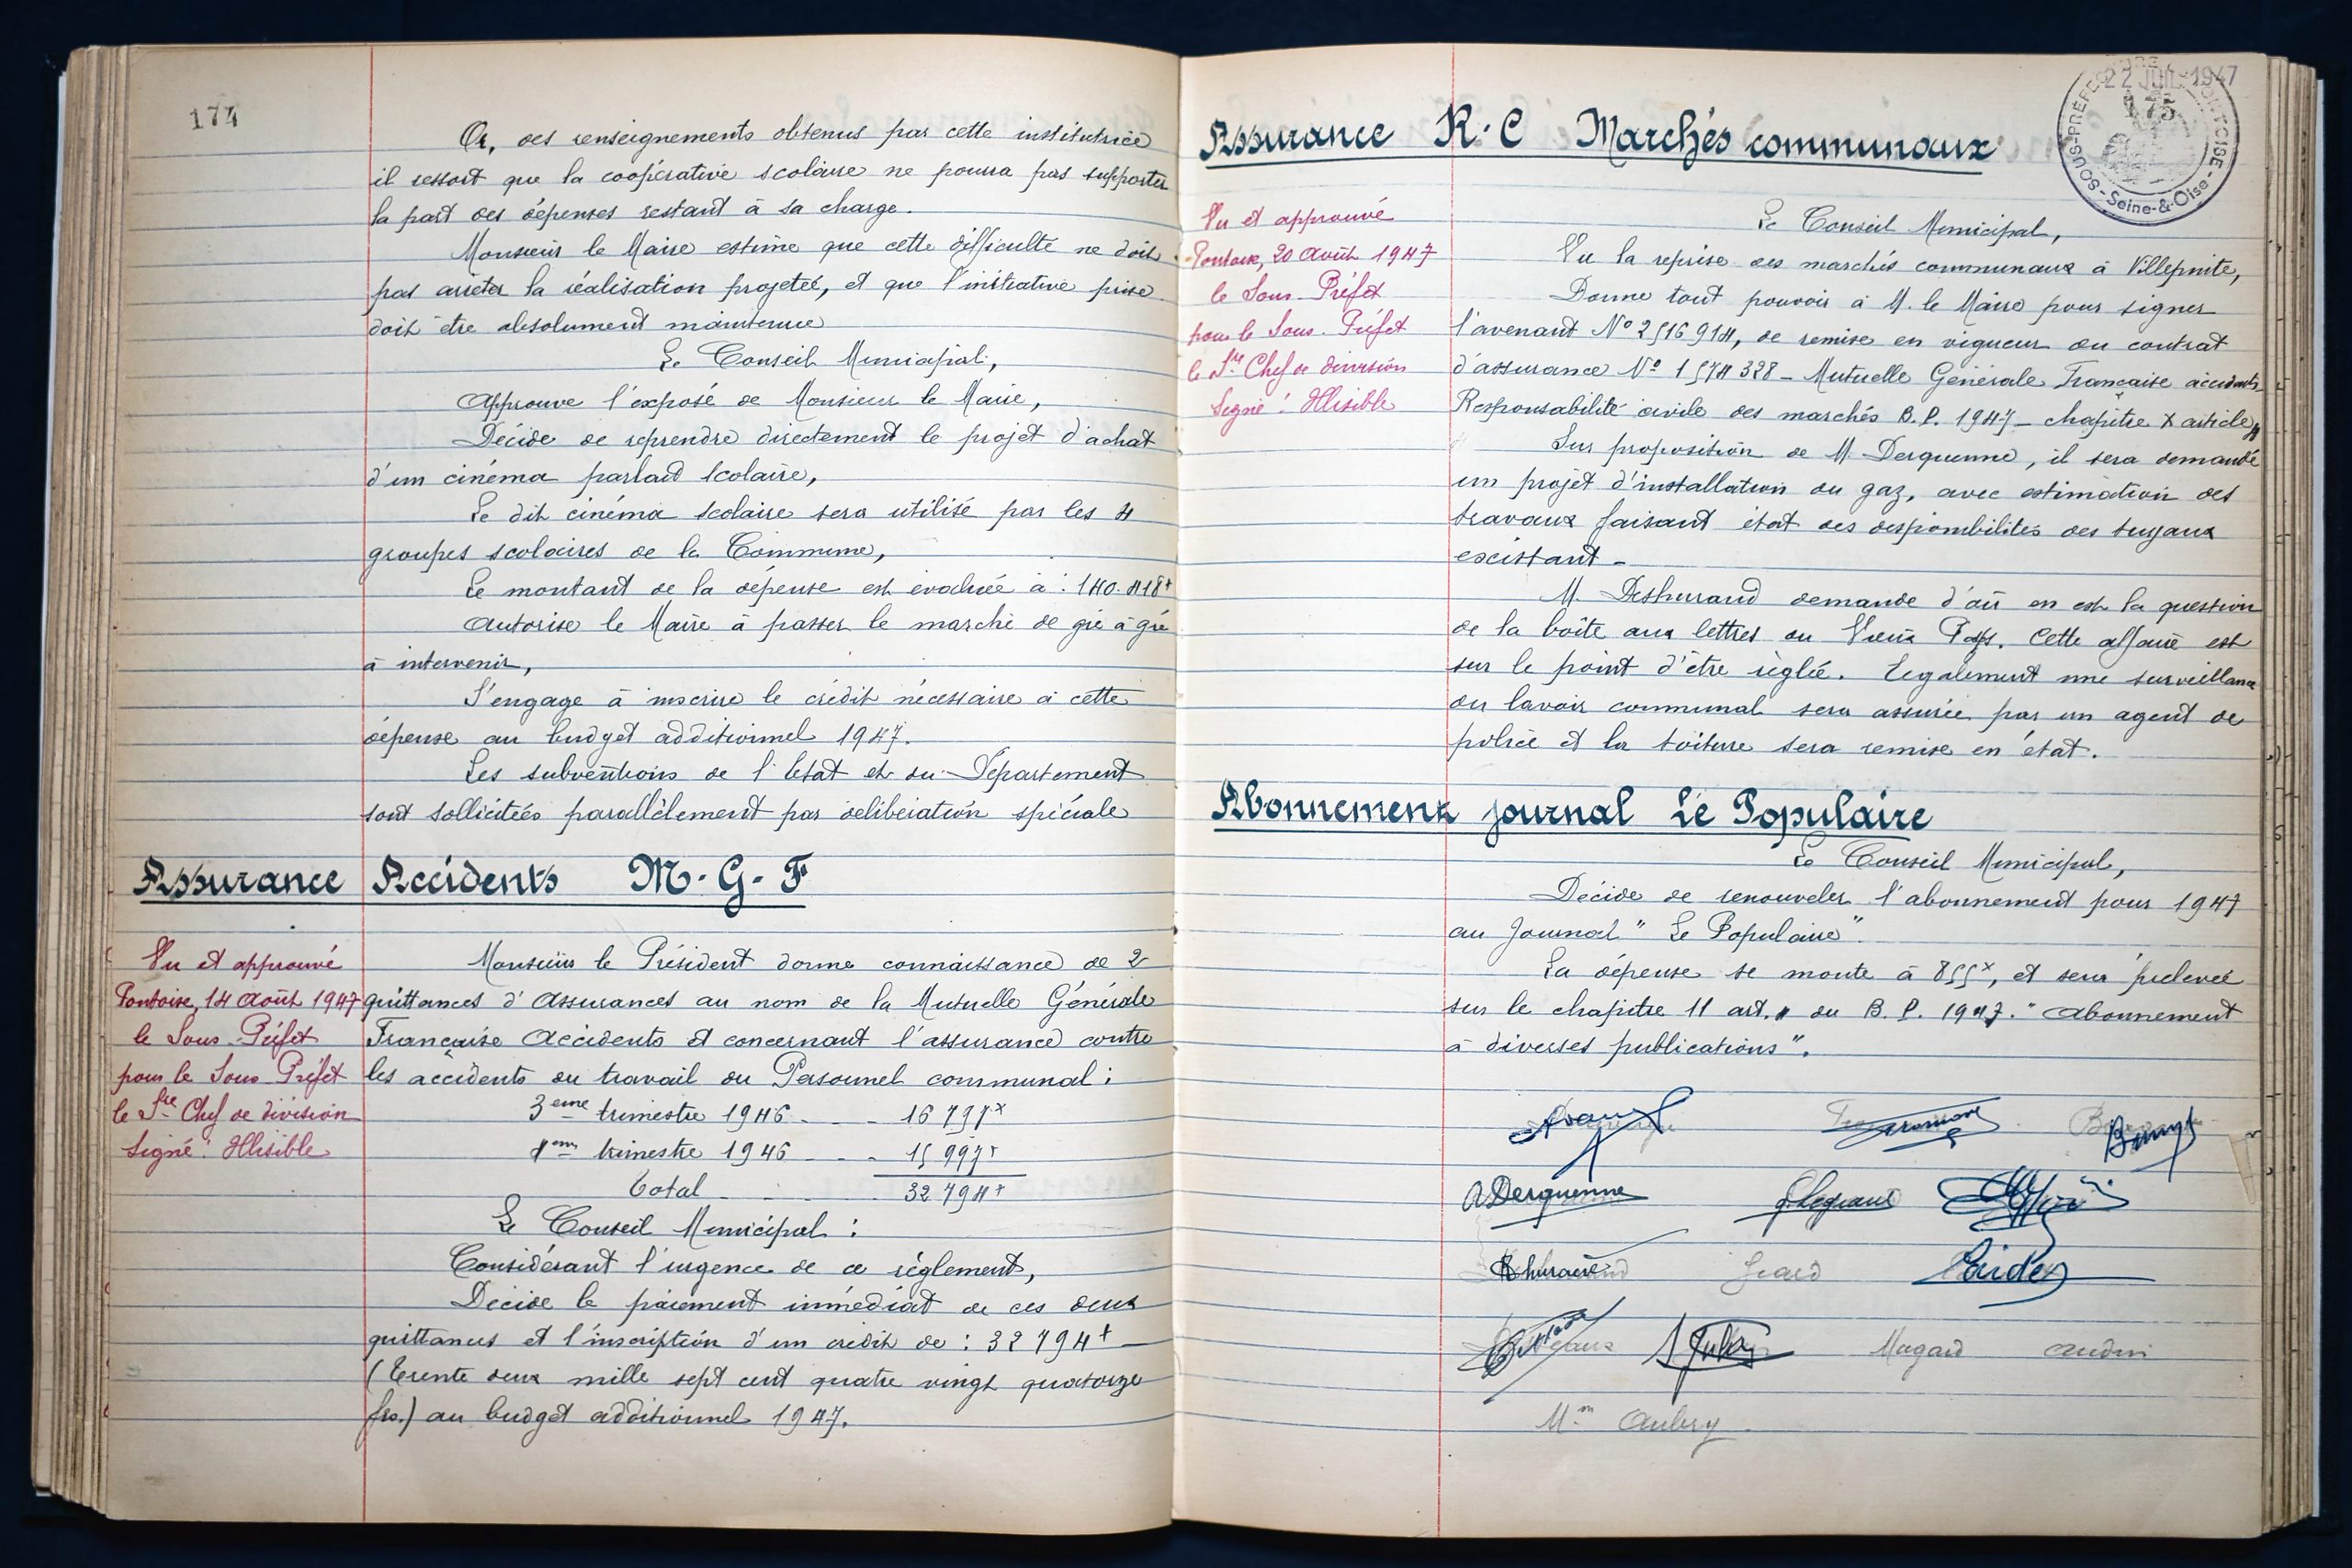 174
Or, des renseignements obtenus par cette institutrice
il ressort que la coopérative scolaire ne pourra pas supporter
la part des dépenses restant à sa charge.
Monsieur le Maire estime que cette difficulté ne doit
pas arrêter la réalisation projetée, et que l'initiative prise
doit être absolument maintenue
Le Conseil Municipal,
Approuve l'exposé de Monsieur le Maire,
Décide de reprendre directement le projet d'achat
d'un cinéma parlant scolaire,
Le dit cinéma scolaire sera utilisé par les 4
groupes scolaires de la Commune,
Le montant de la dépense est évaluée à : 140.418f
Autorise le Maire à passer le marché de gré à gré
à intervenir,
S'engage à inscrire le crédit nécessaire à cette
dépense au budget additionnel 1947.
Les subventions de l'Etat et du Département
sont sollicitées parallèlement par délibération spéciale
Assurance Accidents M.G.F
Vu et approuvé
Pontoise, 14 Août 1947
le Sous-Préfet
pour le Sous-Préfet
le Sre Chef de division
Signé : Illisible
Monsieur le Président donne connaissance de 2
quittances d'Assurances au nom de la Mutuelle Générale
Française Accidents et concernant l'assurance contre
les accidents du travail du Personnel communal :
3eme trimestre 1946 - - - 16 797f
4eme trimestre 1946 - - - 15 997f
Total - - - 32 794f
Le Conseil Municipal :
Considérant l'urgence de ce règlement,
Décide le paiement immédiat de ces deux
quittances et l'inscription d'un crédit de : 32 794f
(Trente deux mille sept cent quatre vingt quatorze
frs.) au budget additionnel 1947.
22 JUIL 1947
175
SOUS-PRÉFECTURE PONTOISE
Seine-&-Oise
Assurance R.C Marchés communaux
Vu et approuvé
Pontoise, 20 Août 1947
le Sous-Préfet
pour le Sous-Préfet
le Sre Chef de division
Signé : Illisible
Le Conseil Municipal,
Vu la reprise des marchés communaux à Villepinte,
Donne tout pouvoir à M. le Maire pour signer
l'avenant N° 2516914, de remise en vigueur du contrat
d'assurance N° 1574328 - Mutuelle Générale Française accidents
Responsabilité civile des marchés B.P. 1947 - chapitre X article
Sur proposition de M. Derquenne, il sera demandé
un projet d'installation du gaz, avec estimation des
travaux faisant état des disponibilités des tuyaux
existant -
M. Deshurand demande d'où en est la question
de la boîte aux lettres du Vieux Pays. Cette affaire est
sur le point d'être réglée. Egalement une surveillance
du lavoir communal sera assurée par un agent de
police et la toiture sera remise en état.
Abonnement journal Le Populaire
Le Conseil Municipal,
Décide de renouveler l'abonnement pour 1947
au Journal "Le Populaire".
La dépense se monte à 855f, et sera prélevée
sur le chapitre 11 art. du B.P. 1947. "Abonnement
à diverses publications".
A Derquenne
Legrand
Magard
Mm Aubry